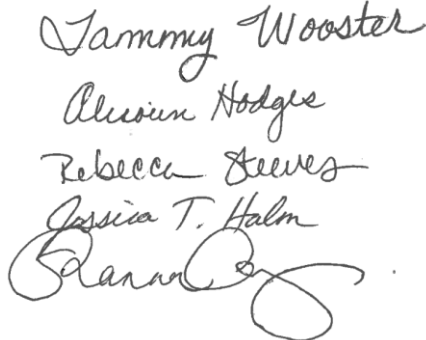 Tammy Wooster
Hodges
Rebecca Steeves
Jessica T. Halm